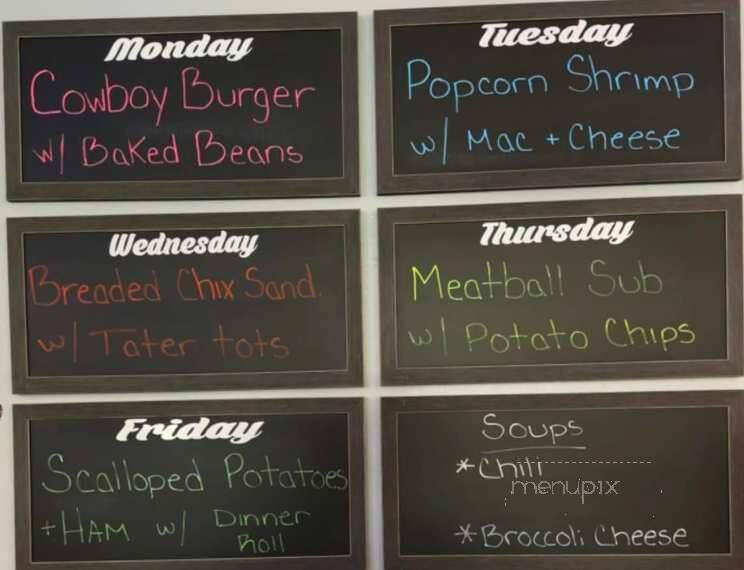 Monday
Cowboy Burger
w/ Baked Beans
Tuesday
Popcorn Shrimp
w/ Mac + Cheese
Wednesday
Breaded Chix Sand.
w/ Tater tots
Thursday
Meatball Sub
w/ Potato Chips
Friday
Scalloped Potatoes
+ HAM w/ Dinner
Roll
Soups
* Chili
menupix
* Broccoli Cheese